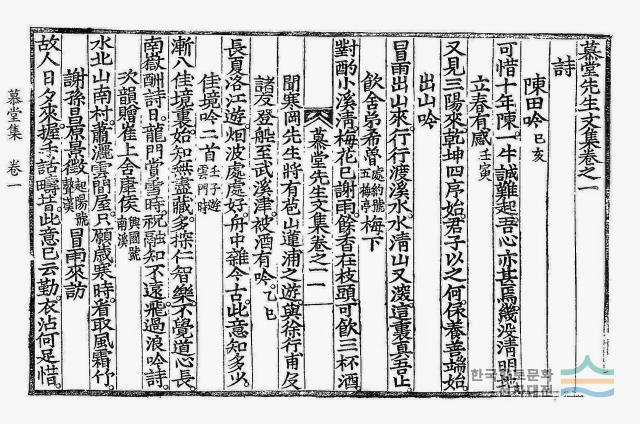 慕堂先生文集卷之一
詩
陳田吟 己亥
可惜十年陳一牛誠難起吾心亦甚焉幾沒淸明地
立春有感 壬寅
又見三陽來乾坤四序始君子以之何保養善端始
出山吟
冒雨出山來行行渡溪水水淸山又深這裏眞吾止
飮舍弟希魯 處約號五梅亭 梅下
對酌小溪淸梅花已謝雨餘香在枝頭可飮三杯酒
慕堂先生文集卷之一 一
聞寒岡先生將有苞山蓮浦之遊與徐行甫及
諸友登船至武溪津被酒有吟 乙巳
長夏洛江遊烟波處處好舟中雜今古此意知多少
佳境吟二首 壬子遊雲門時
漸八佳境裏始知無盡藏多採仁智樂不覺道心長
南嶽酬詩日龍門賞雪時祝融知不遠飛過浪吟詩
次韻贈崔上舍康侯 興國號南溪
水北山南村蕭灑雲間屋只願歲寒時看取風霜竹
謝孫昌原景徵 起陽號鰲漢 冒雨來訪
故人日夕來握手話疇昔此意已云勤衣沾何足惜
慕堂集 卷一
한국향토문화
전자대전